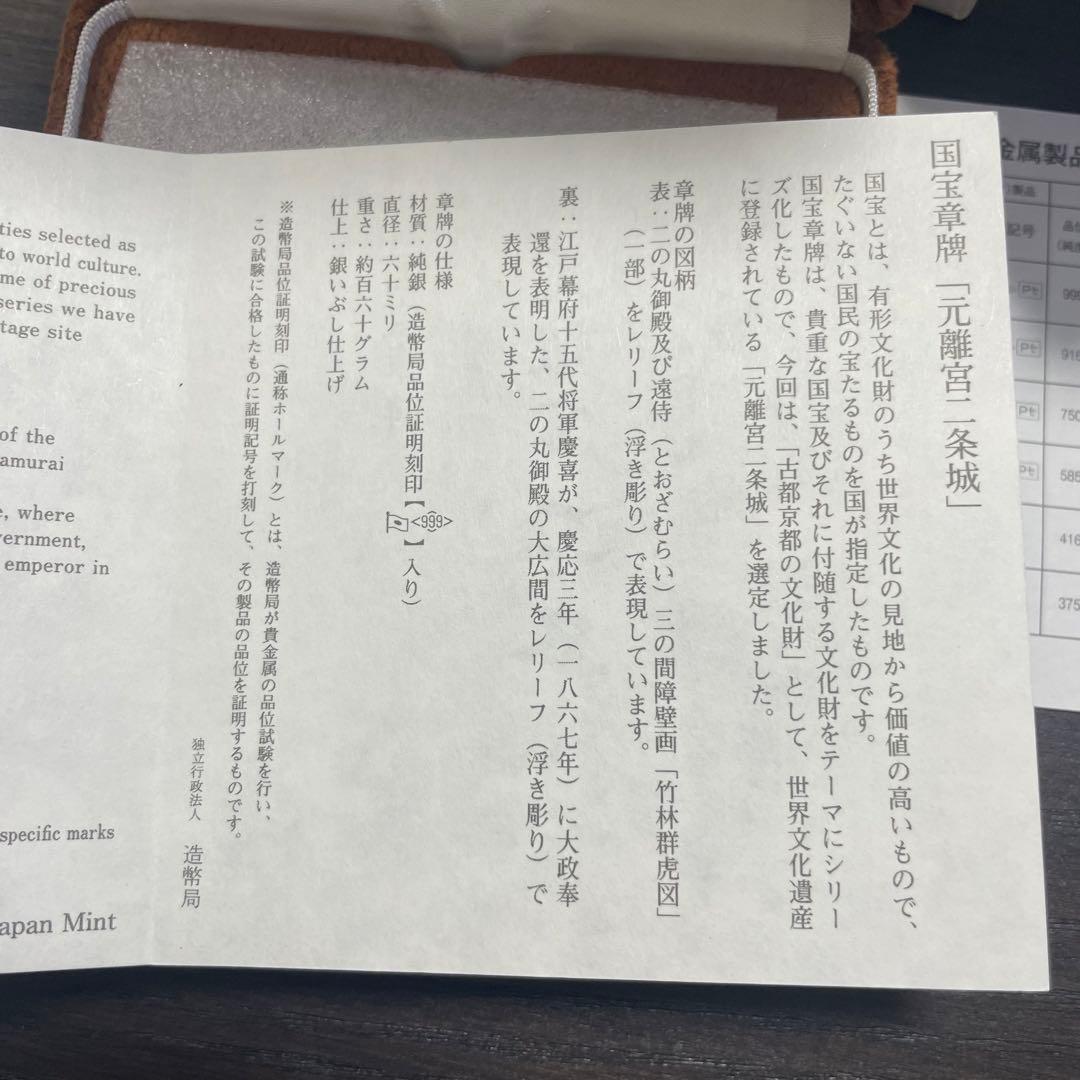 国宝章牌「元離宮二条城」
国宝とは、有形文化財のうち世界文化の見地から価値の高いもので、
たぐいない国民の宝たるものを国が指定したものです。
国宝章牌は、貴重な国宝及びそれに付随する文化財をテーマにシリー
ズ化したもので、今回は、「古都京都の文化財」として、世界文化遺産
に登録されている「元離宮二条城」を選定しました。
章牌の図柄
表：二の丸御殿及び遠侍（とおざむらい）三の間障壁画「竹林群虎図」
（一部）をレリーフ（浮き彫り）で表現しています。
裏：江戸幕府十五代将軍慶喜が、慶応三年（一八六七年）に大政奉
還を表明した、二の丸御殿の大広間をレリーフ（浮き彫り）で
表現しています。
章牌の仕様
材質：純銀（造幣局品位証明刻印【<999>】入り）
直径：六十ミリ
重さ：約百六十グラム
仕上：銀いぶし仕上げ
※造幣局品位証明刻印（通称ホールマーク）とは、造幣局が貴金属の品位試験を行い、
この試験に合格したものに証明記号を打刻して、その製品の品位を証明するものです。
独立行政法人 造幣局
ties selected as
to world culture.
me of precious
series we have
tage site
of the
amurai
e, where
vernment,
emperor in
specific marks
apan Mint
金属製品
製品
記号
品位
999
916
Pt
750
Pt
585
Pt
416
375